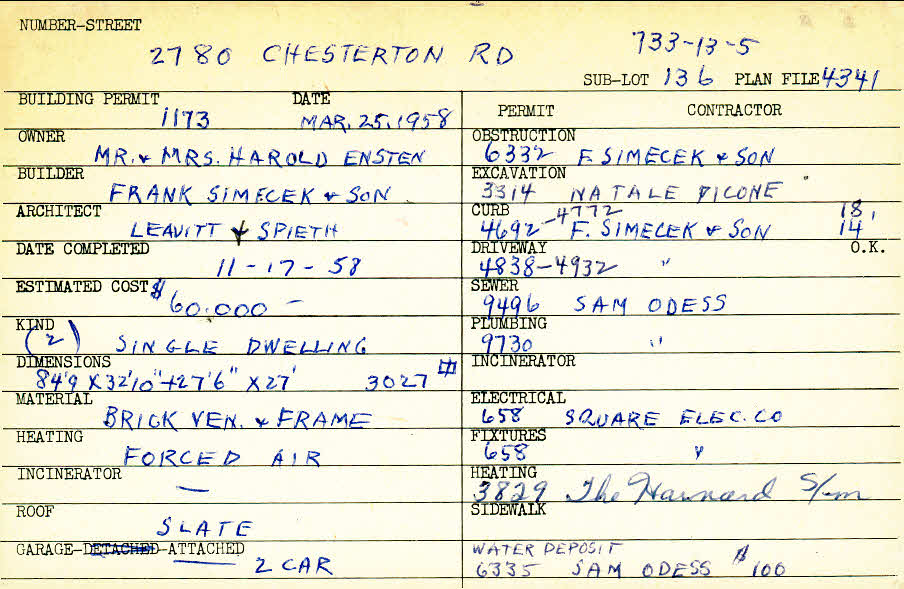 NUMBER-STREET
2780 CHESTERTON RD 733-13-5
SUB-LOT 136 PLAN FILE 4341
BUILDING PERMIT DATE
1173 MAR. 25, 1958
OWNER
MR. & MRS. HAROLD ENSTEN
BUILDER
FRANK SIMECEK & SON
ARCHITECT
LEAVITT & SPIETH
DATE COMPLETED
11-17-58
ESTIMATED COST $
60.000 —
KIND
(2) SINGLE DWELLING
DIMENSIONS
84'9 X 32'10" + 27'6" X 27' 3027 #
MATERIAL
BRICK VEN. & FRAME
HEATING
FORCED AIR
INCINERATOR
—
ROOF
SLATE
GARAGE-DETACHED-ATTACHED
2 CAR
PERMIT CONTRACTOR
OBSTRUCTION
6332 F. SIMECEK & SON
EXCAVATION
3314 NATALE PICONE
CURB
4692-4772 F. SIMECEK & SON 18, 14
DRIVEWAY O.K.
4838-4932 "
SEWER
9496 SAM ODESS
PLUMBING
9730 "
INCINERATOR
ELECTRICAL
658 SQUARE ELEC. CO
FIXTURES
658 "
HEATING
3829 The
SIDEWALK
WATER DEPOSIT
6335 SAM ODESS $100